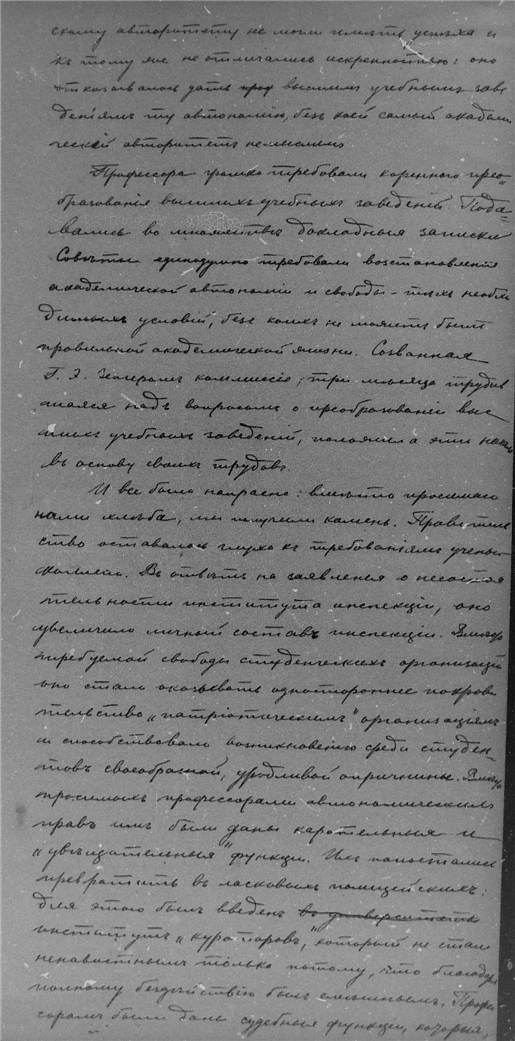 скому авторитету не могли имѣть успѣха и
къ тому же не отличались искренностью: оно
отказывалось дать высшимъ учебнымъ заве
деніямъ ту автономію, безъ коей самый академи
ческій авторитетъ немыслимъ
Профессора громко требовали коренного прео
бразованія высшихъ учебныхъ заведеній. Пода-
вались во множествѣ докладныя записки
Совѣты единодушно требовали возстановленія
академической автономіи и свободы – тѣхъ необхо
димыхъ условій, безъ коихъ не можетъ быть
правильной академической жизни. Созванная
Г. Э. Зенгеромъ коммиссія, три мѣсяца трудив
шаяся надъ вопросомъ о преобразованіи выс
шихъ учебныхъ заведеній, положила эти начала
въ основу своихъ трудовъ.
И все было напрасно: вмѣсто просимаго
нами хлѣба, мы получили камень. Правитель
ство оставалось глухо къ требованіямъ ученыхъ
коллегій. Въ отвѣтъ на заявленія о несостоя
тельности института инспекціи, оно
увеличило личный составъ инспекціи. Вмѣсто
требуемой свободы студенческихъ организацій
оно стало оказывать одностороннее покрови
тельство „патріотическимъ" организаціямъ
и способствовало возникновенію среди студен-
товъ своеобразной, уродливой опричнины. Вмѣсто
просимыхъ профессорами автономическихъ
правъ имъ были даны карательныя и
„увѣщательныя" функціи. Ихъ попытались
превратить въ ласковыхъ полицейскихъ:
для этого былъ введенъ въ университетъ
институтъ „кураторовъ", который не сталъ
ненавистнымъ только потому, что благодаря
полному бездѣйствію былъ смѣшнымъ. Профес
сорамъ были даны судебныя функціи, которыя,